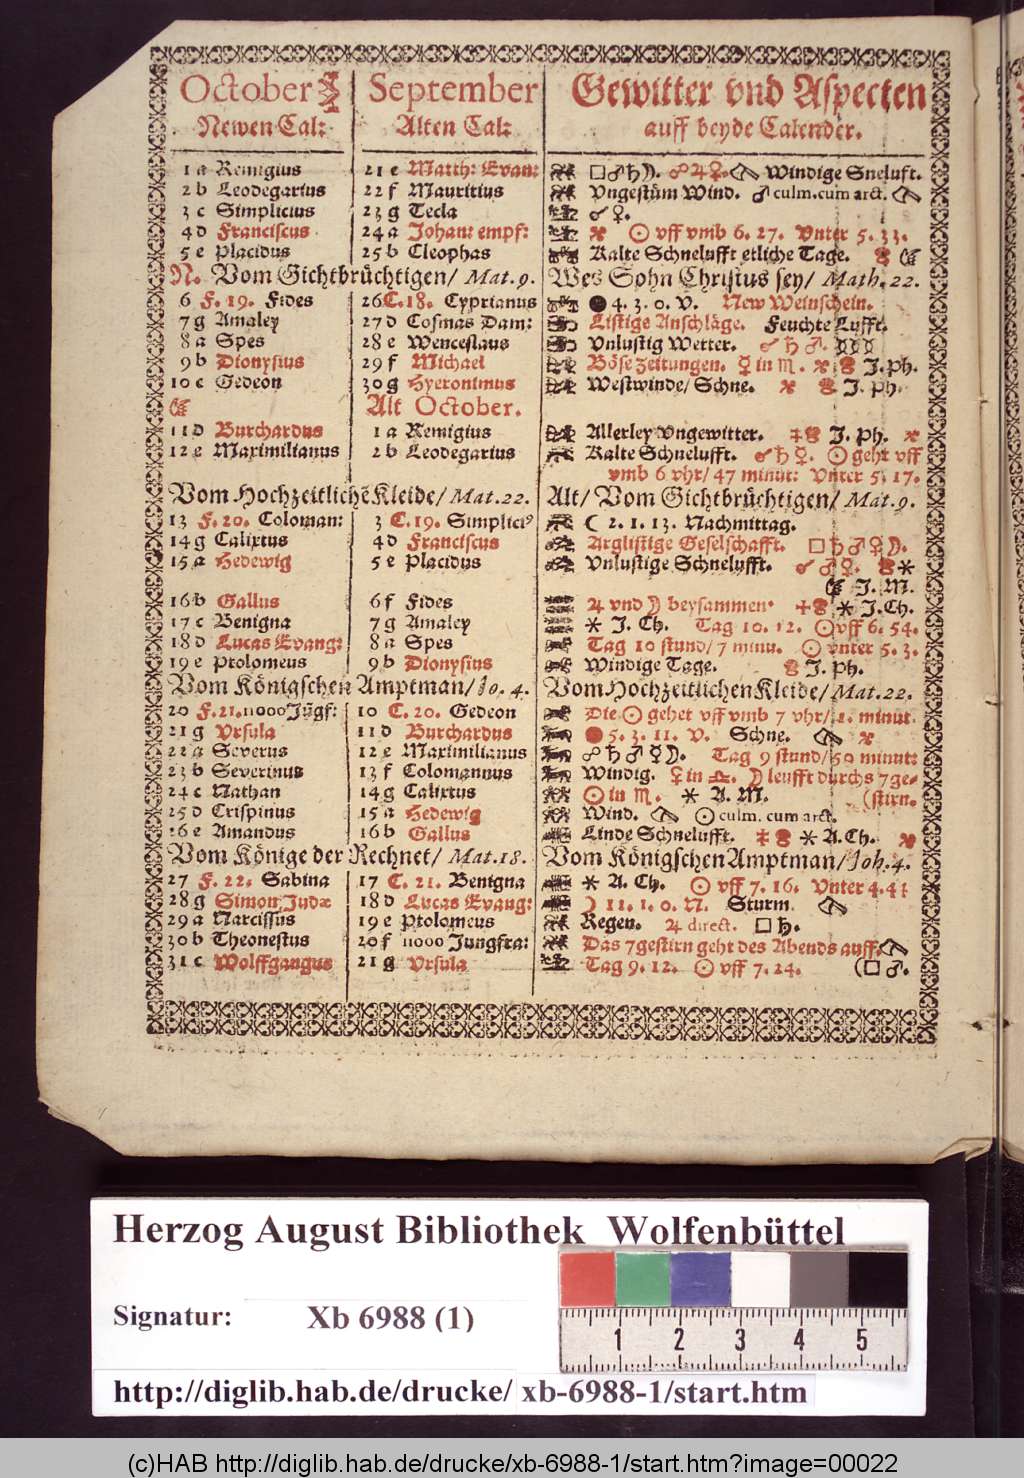 October September Gewitter vnd Aspecten
Newen Cal: Alten Cal: auff beyde Calender.
1 a Remigius 21 e Matth: Evan: □ ♂ ♄ ☽. ☍ ♃ ♀. Windige Sneluft.
2 b Leodegarius 22 f Mauritius Vngestüm Wind. ♂ culm. cum arct.
3 c Simplicius 23 g Tecla ☌ ♀.
4 d Franciscus 24 a Johan: empf: ☉ vff vmb 6. 27. Vnter 5. 33.
5 e Placidus 25 b Cleophas Kalte Schnelufft etliche Tage.
N. Vom Gichtbrüchtigen/ Mat. 9. Wes Sohn Christus sey/ Math. 22.
6 F. 19. Fides 26 C. 18. Cyprianus ● 4. 3. 0. V. New Weinschein.
7 g Amaley 27 d Cosmas Dam: Listige Anschläge. Feuchte Lufft.
8 a Spes 28 e Wenceslaus Vnlustig Wetter. ☌ ♄ ♂. ☿ ☿ ☿
9 b Dionysius 29 f Michael Böse Zeitungen. ☿ in ♏. J. Ph.
10 c Gedeon 30 g Hyeronimus Westwinde/ Schne. J. Ph.
Alt October.
11 d Burchardus 1 a Remigius Allerley Vngewitter. J. Ph.
12 e Maximilianus 2 b Leodegarius Kalte Schnelufft. ☌ ♄ ♀. ☉ geht vff
vmb 6 vhr/ 47 minut: Vnter 5. 17.
Vom Hochzeitlichē Kleide/ Mat. 22. Alt/ Vom Gichtbrüchtigen/ Mat. 9.
13 F. 20. Coloman: 3 C. 19. Simplici⁹ ☾ 2. 1. 13. Nachmittag.
14 g Calixtus 4 d Franciscus Arglistige Geselschafft. □ ♄ ♂ ♀ ☽.
15 a Hedewig 5 e Placidus Vnlustige Schnelufft. ☌ ♂ ♀. ⚹
J. M.
16 b Gallus 6 f Fides ♃ vnd ☽ beysammen. ⚹ J. Ch.
17 c Benigna 7 g Amaley ⚹ J. Ch. Tag 10. 12. ☉ vff 6. 54.
18 d Lucas Evang: 8 a Spes Tag 10 stund/ 7 minu. ☉ vnter 5. 3.
19 e Ptolomeus 9 b Dionysius Windige Tage. J. Ph.
Vom Königschen Amptman/ Jo. 4. Vom Hochzeitlichen Kleide/ Mat. 22.
20 F. 21. 11000 Jūgf: 10 C. 20. Gedeon Die ☉ gehet vff vmb 7 vhr/ 1. minut.
21 g Vrsula 11 d Burchardus ● 5. 3. 11. V. Schne.
22 a Severus 12 e Maximilianus ☍ ♄ ♂ ☿ ☽. Tag 9 stund/ 50 minut:
23 b Severinus 13 f Colomannus Windig. ♀ in ♎. ☽ leufft durchs 7ge-
24 c Nathan 14 g Calixtus ☉ in ♏. ⚹ A. M. (stirn.
25 d Crispinus 15 a Hedewig Wind. ☉ culm. cum arct.
26 e Amandus 16 b Gallus Linde Schnelufft. ⚹ A. Ch.
Vom Könige der Rechnet/ Mat. 18. Vom Königschen Amptman/ Joh. 4.
27 F. 22. Sabina 17 C. 21. Benigna ⚹ A. Ch. ☉ vff 7. 16. Vnter 4. 44
28 g Simon Judæ 18 d Lucas Evang: ☽ 11. 1. 0. N. Sturm.
29 a Narcissus 19 e Ptolomeus Regen. ♃ direct. □ ♄.
30 b Theonestus 20 f 11000 Jungfra: Das 7gestirn geht des Abends auff.
31 c Wolffgangus 21 g Vrsula Tag 9. 12. ☉ vff 7. 24. (□ ♂.
Herzog August Bibliothek Wolfenbüttel
Signatur: Xb 6988 (1)
1 2 3 4 5
http://diglib.hab.de/drucke/ xb-6988-1/start.htm
(c)HAB http://diglib.hab.de/drucke/xb-6988-1/start.htm?image=00022